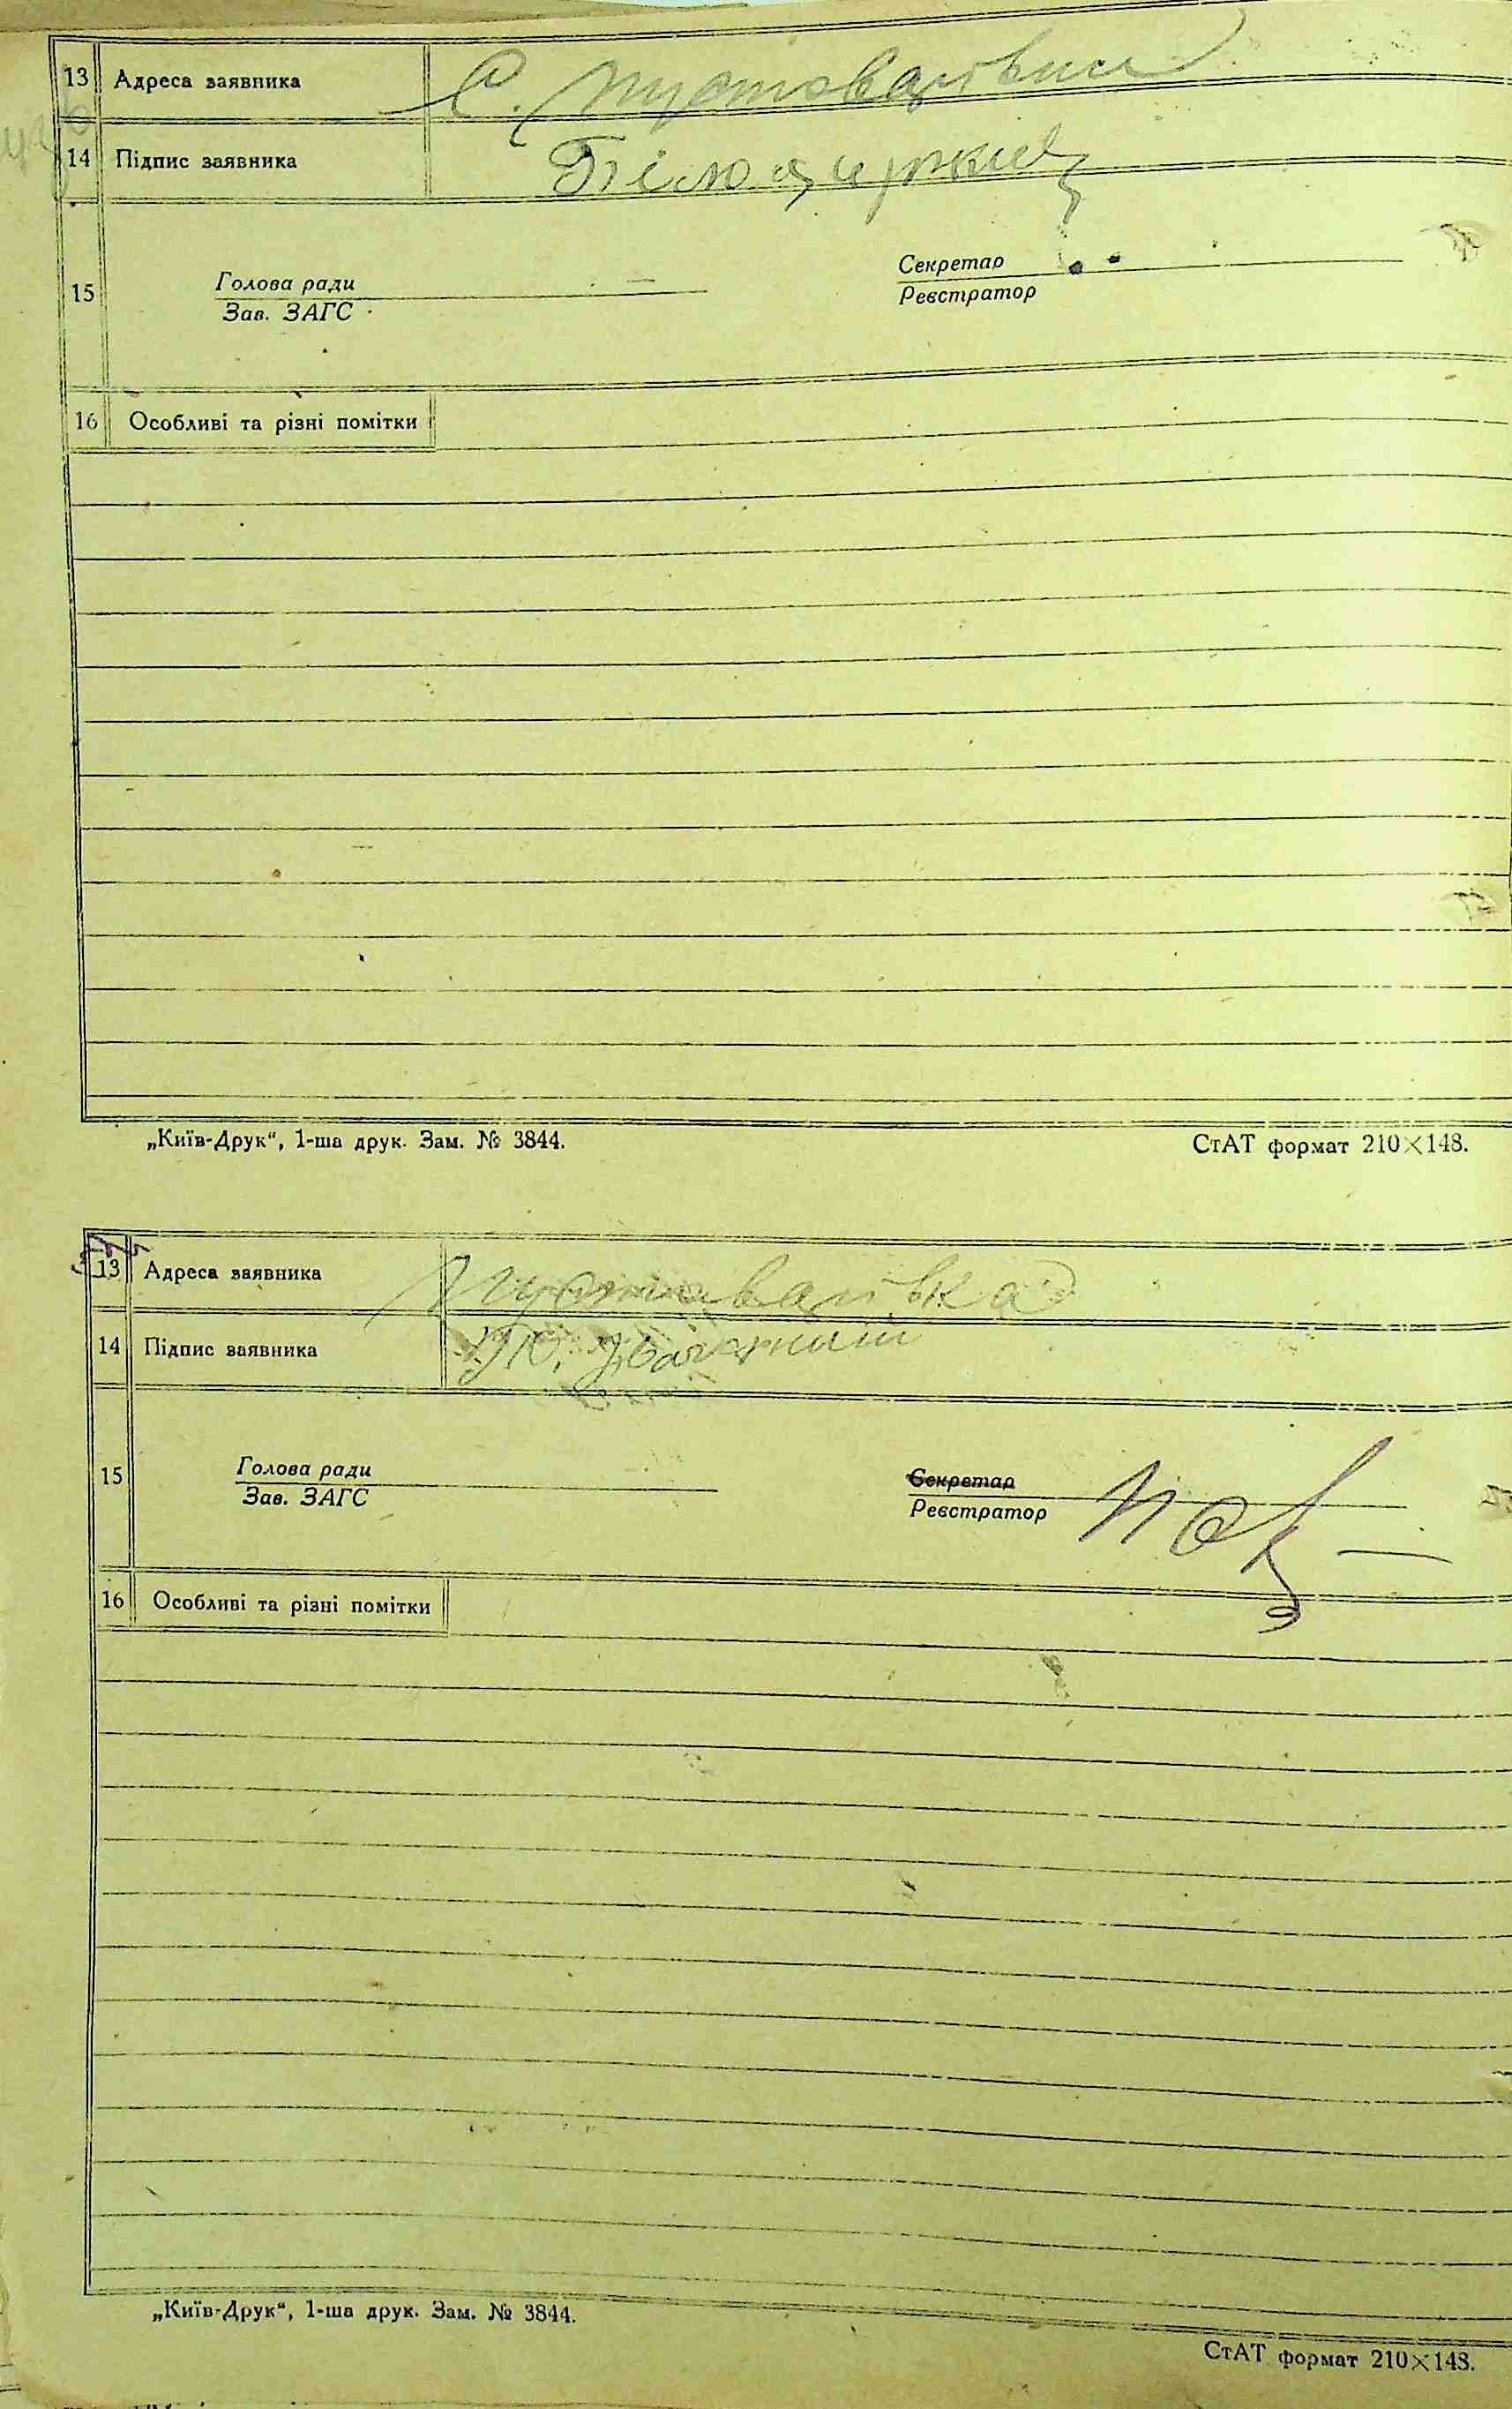 13 Адреса заявника С. Пустоварівка
14 Підпис заявника Білоцирківец
15 Голова ради Секретар
Зав. ЗАГС Реєстратор
16 Особливі та різні помітки
„Київ-Друк“, 1-ша друк. Зам. № 3844. СтАТ формат 210×148.
13 Адреса заявника Пустоварівка
14 Підпис заявника
15 Голова ради Секретар
Зав. ЗАГС Реєстратор
16 Особливі та різні помітки
„Київ-Друк“, 1-ша друк. Зам. № 3844.
СтАТ формат 210×148.